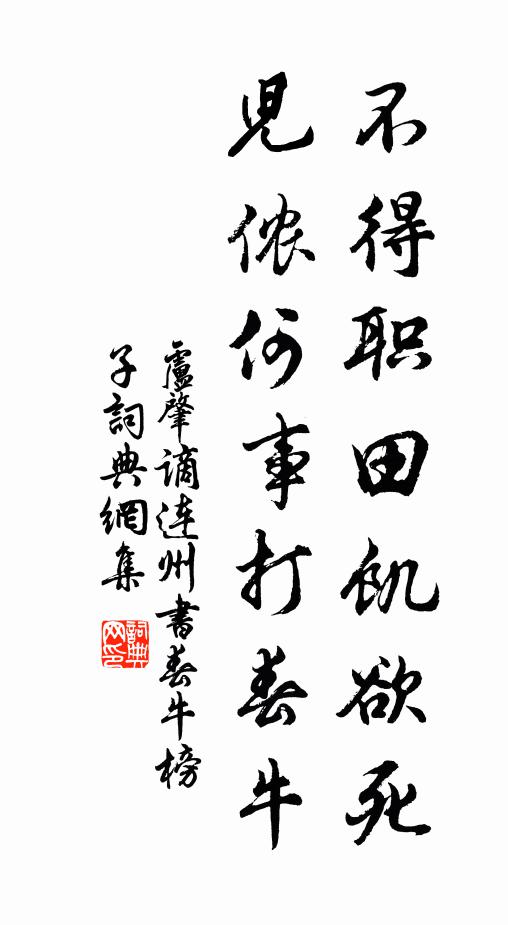 不得职田飢欲死
児侬何事打春牛
盧肇谪连州書春牛榜
子詞典網集
詞典网印